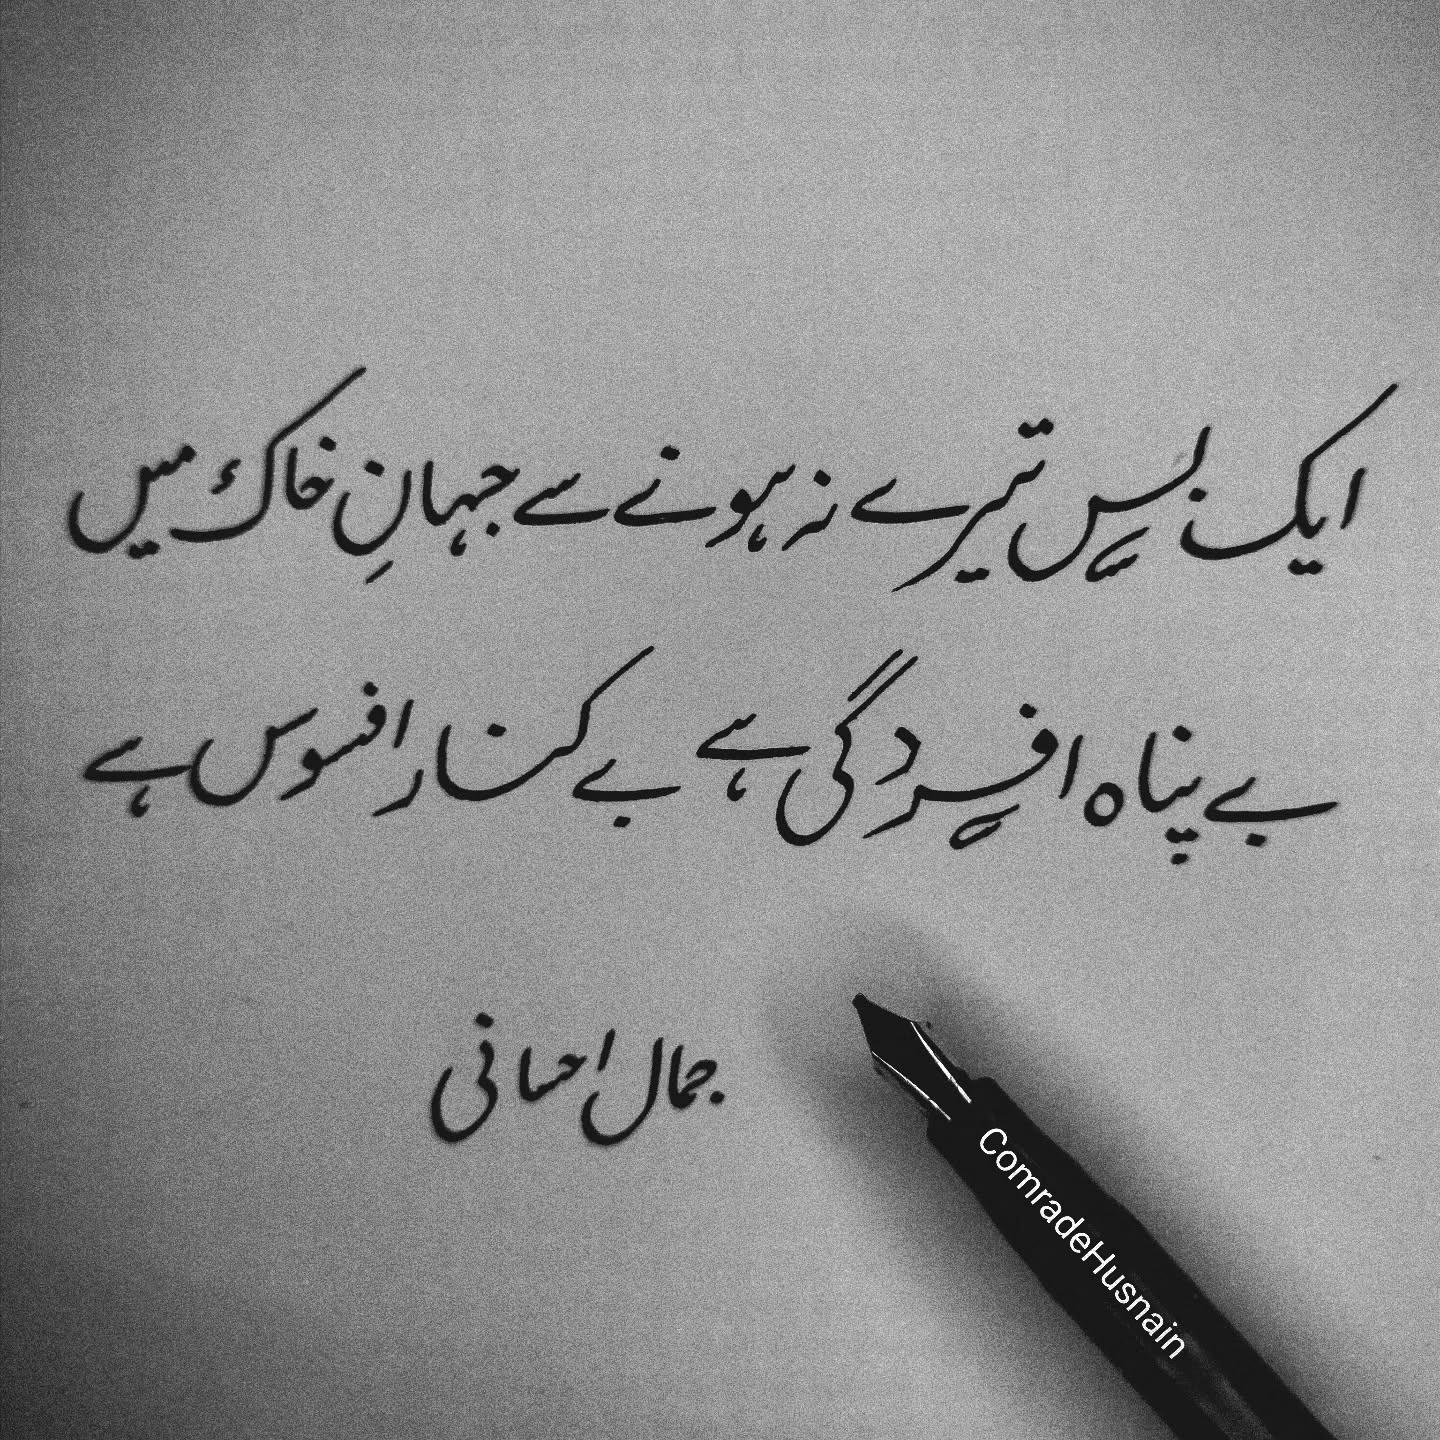 ایک بس تیرے نہ ہونے سے جہانِ خاک میں
بے پناہ افسردگی ہے بے کنار افسوس ہے
جمال احسانی
ComradeHusnain